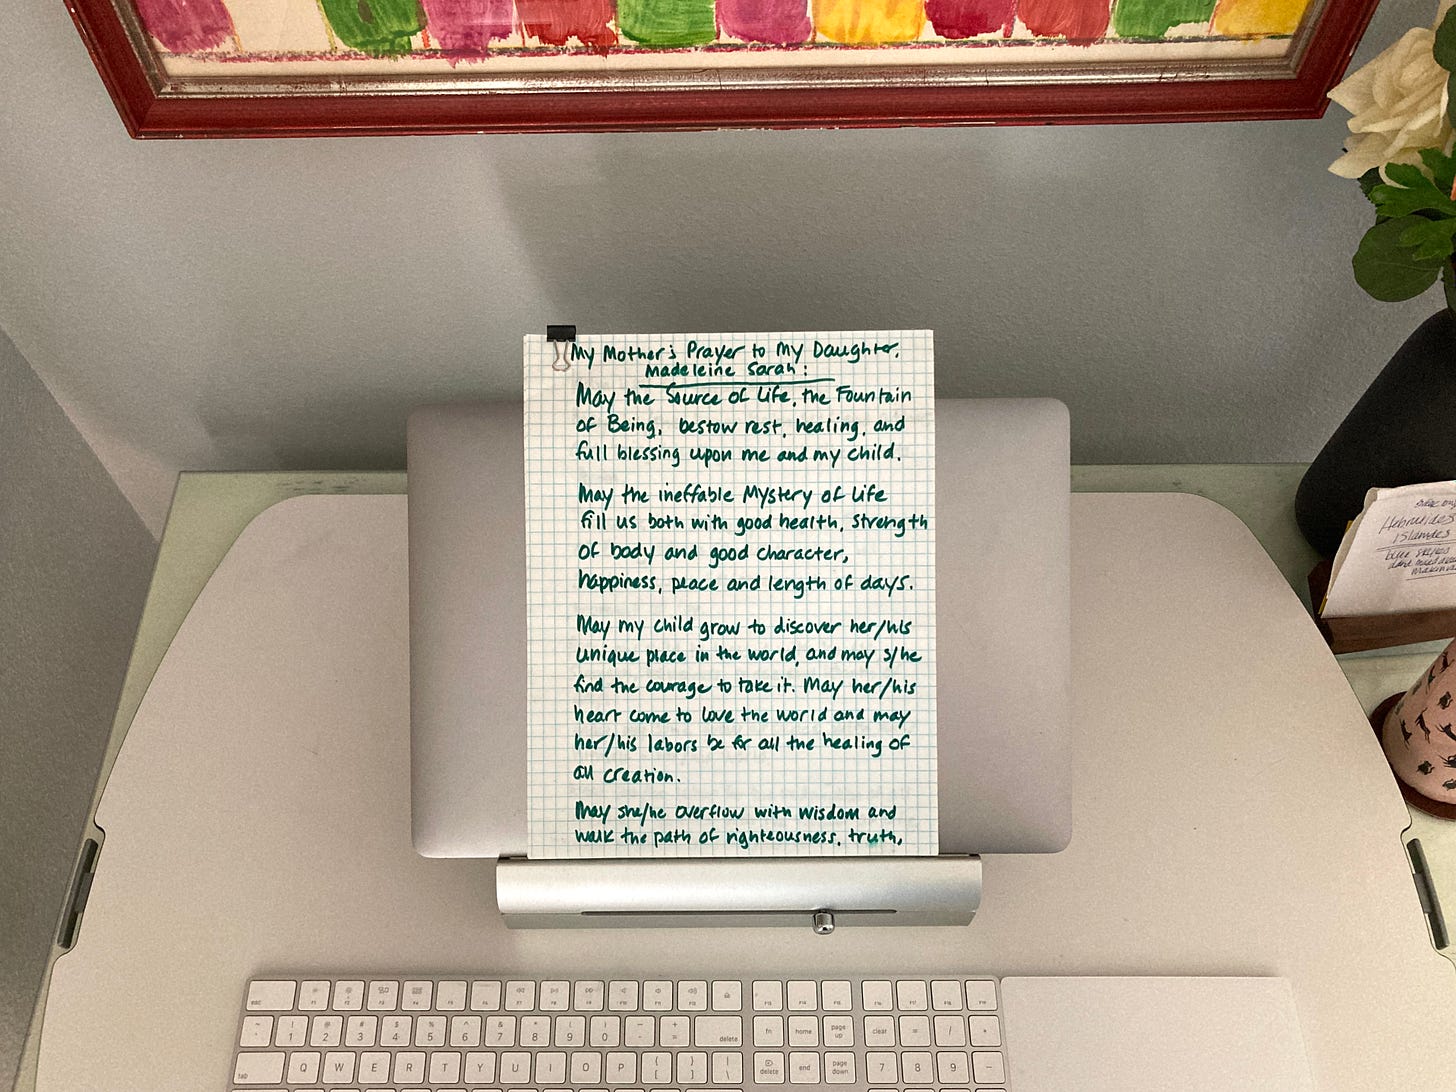 My Mother's Prayer to My Daughter,
Madeleine Sarah:
May the Source of Life, the Fountain
of Being, bestow rest, healing, and
full blessing upon me and my child.
May the ineffable Mystery of Life
fill us both with good health, strength
of body and good character,
happiness, peace and length of days.
May my child grow to discover her/his
unique place in the world, and may s/he
find the courage to take it. May her/his
heart come to love the world and may
her/his labors be for all the healing of
all creation.
May she/he overflow with wisdom and
walk the path of righteousness, truth,
Hebrides
Islands
blue skies
esc F1 F2 F3 F4 F5 F6 F7 F8 F9 F10 F11 F12 F13 F14 F15 F16 F17 F18 F19
~ ` ! 1 @ 2 # 3 $ 4 % 5 ^ 6 & 7 * 8 ( 9 ) 0 _ - + = delete fn home page up clear = / *
tab Q W E R T Y U I O P { [ } ] | \ delete end page down 7 8 9 -